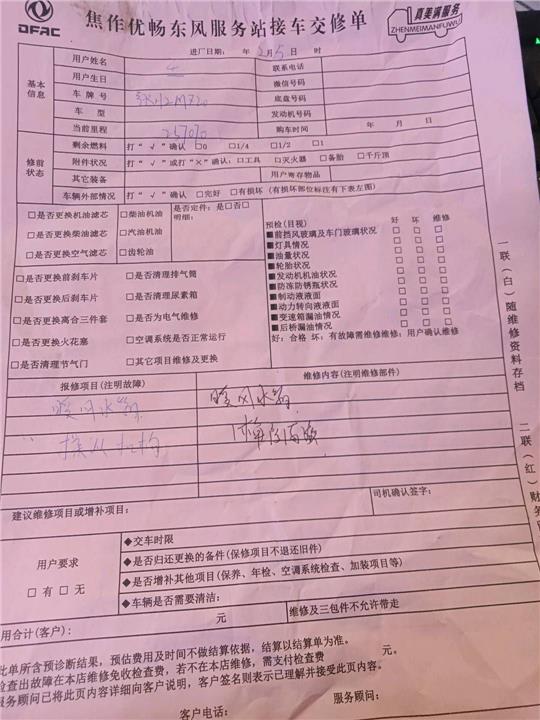 DFAC
焦作优畅东风服务站接车交修单
真美满服务
ZHENMEIMANFUWU
进厂日期: 年 2月5日 时
基本信息
用户姓名
联系电话
用户生日
微信号码
车牌号
底盘号码
车型
发动机号码
当前里程
购车时间 年 月 日
修前状态
剩余燃料 打“√”确认 □0 □1/4 □1/2 □1
附件状况 打“√”或打“×”确认:□工具 □灭火器 □备胎 □千斤顶
其它装备
用户寄存物品
车辆外部情况 打“√”确认 □完好 □有损坏(有损坏部位标注有下表左图)
□是否更换机油滤芯 □柴油机油
□是否更换柴油滤芯 □汽油机油
□是否更换空气滤芯 □齿轮油
是否定件:是□否□
明细:
□是否更换前刹车片 □是否清理排气筒
□是否更换后刹车片 □是否清理尿素箱
□是否更换离合三件套 □是否为电气维修
□是否更换火花塞 □空调系统是否正常运行
□是否清理节气门 □其它项目维修及更换
预检(目视) 好 坏 维修
■前挡风玻璃及车门玻璃状况 □ □ □
■灯具情况 □ □ □
■油量状况 □ □ □
■轮胎状况 □ □ □
■发动机机油状况 □ □ □
■防冻防锈瓶状况 □ □ □
■制动液液面 □ □ □
■动力转向液液面 □ □ □
■变速箱漏油情况 □ □ □
■后桥漏油情况 □ □ □
好:合格 坏:有故障需维修维修:用户确认维修
报修项目(注明故障)
维修内容(注明维修部件)
暖风水箱
暖风水箱
操纵机构
司机确认签字:
建议维修项目或增补项目:
用户要求
□有 □无
◆交车时限
◆是否归还更换的备件(保修项目不退还旧件)
◆是否增补其他项目(保养、年检、空调系统检查、加装项目等)
◆车辆是否需要清洁:
用合计(客户): 元
维修及三包件不允许带走
此单所含预诊断结果,预估费用及时间不做结算依据,结算以结算单为准。
检查出故障在本店维修免收检查费,若不在本店维修,需支付检查费 元。
服务顾问已将此页内容详细向客户说明,客户签名则表示已理解并接受此页内容。
客户电话:
服务顾问:
一联(白)随维修资料存档
二联(红)财务